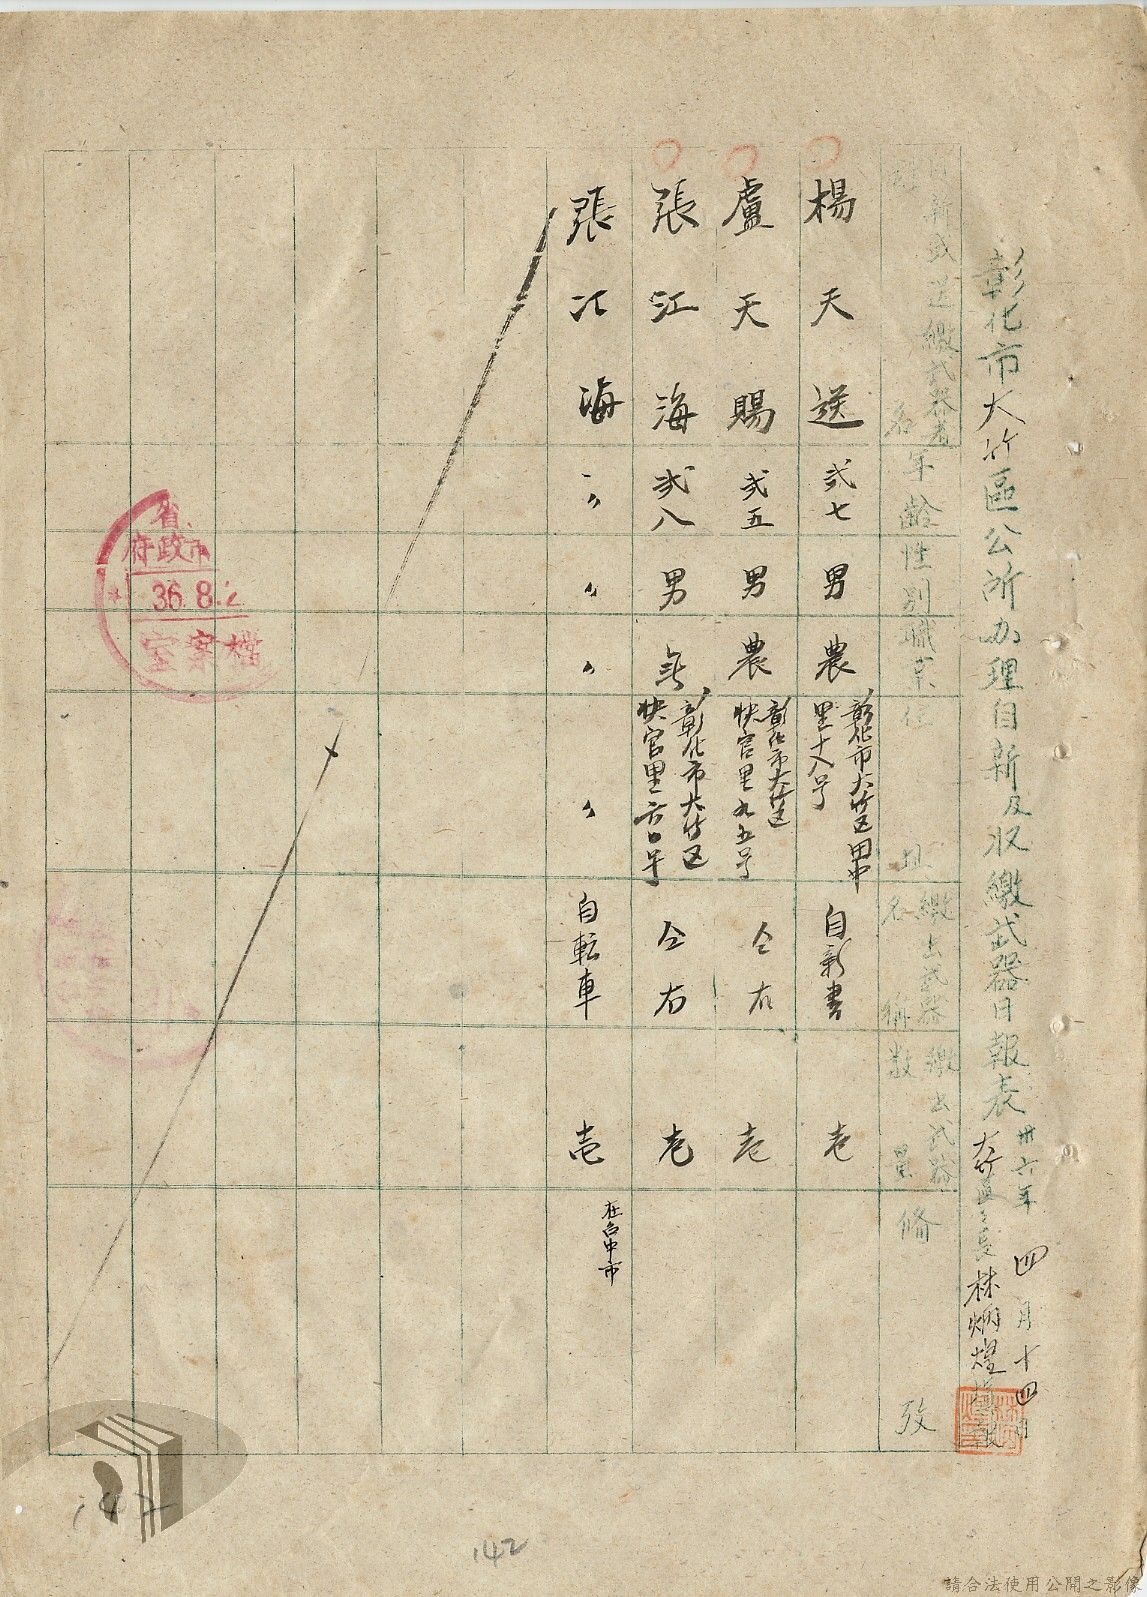 彰化市大竹區公所办理自新及収繳武器日報表
卅六年四月十四日
大竹區長林炳煌
自新或送繳武器者
姓名
年齡
性別
職業
住址
繳出武器
名稱
繳出武器
數量
俻攷
楊天送
弍七
男
農
彰化市大竹区田中
里十八号
自新書
壱
盧天賜
弍五
男
農
彰化市大竹区
快官里九五号
仝右
壱
張江海
弍八
男
無
彰化市大竹区
快官里六〇号
仝右
壱
張江海
〃
〃
〃
〃
自転車
壱
在台中市
省
市政府
36.8.
檔案室
142
142
請合法使用公開之影像